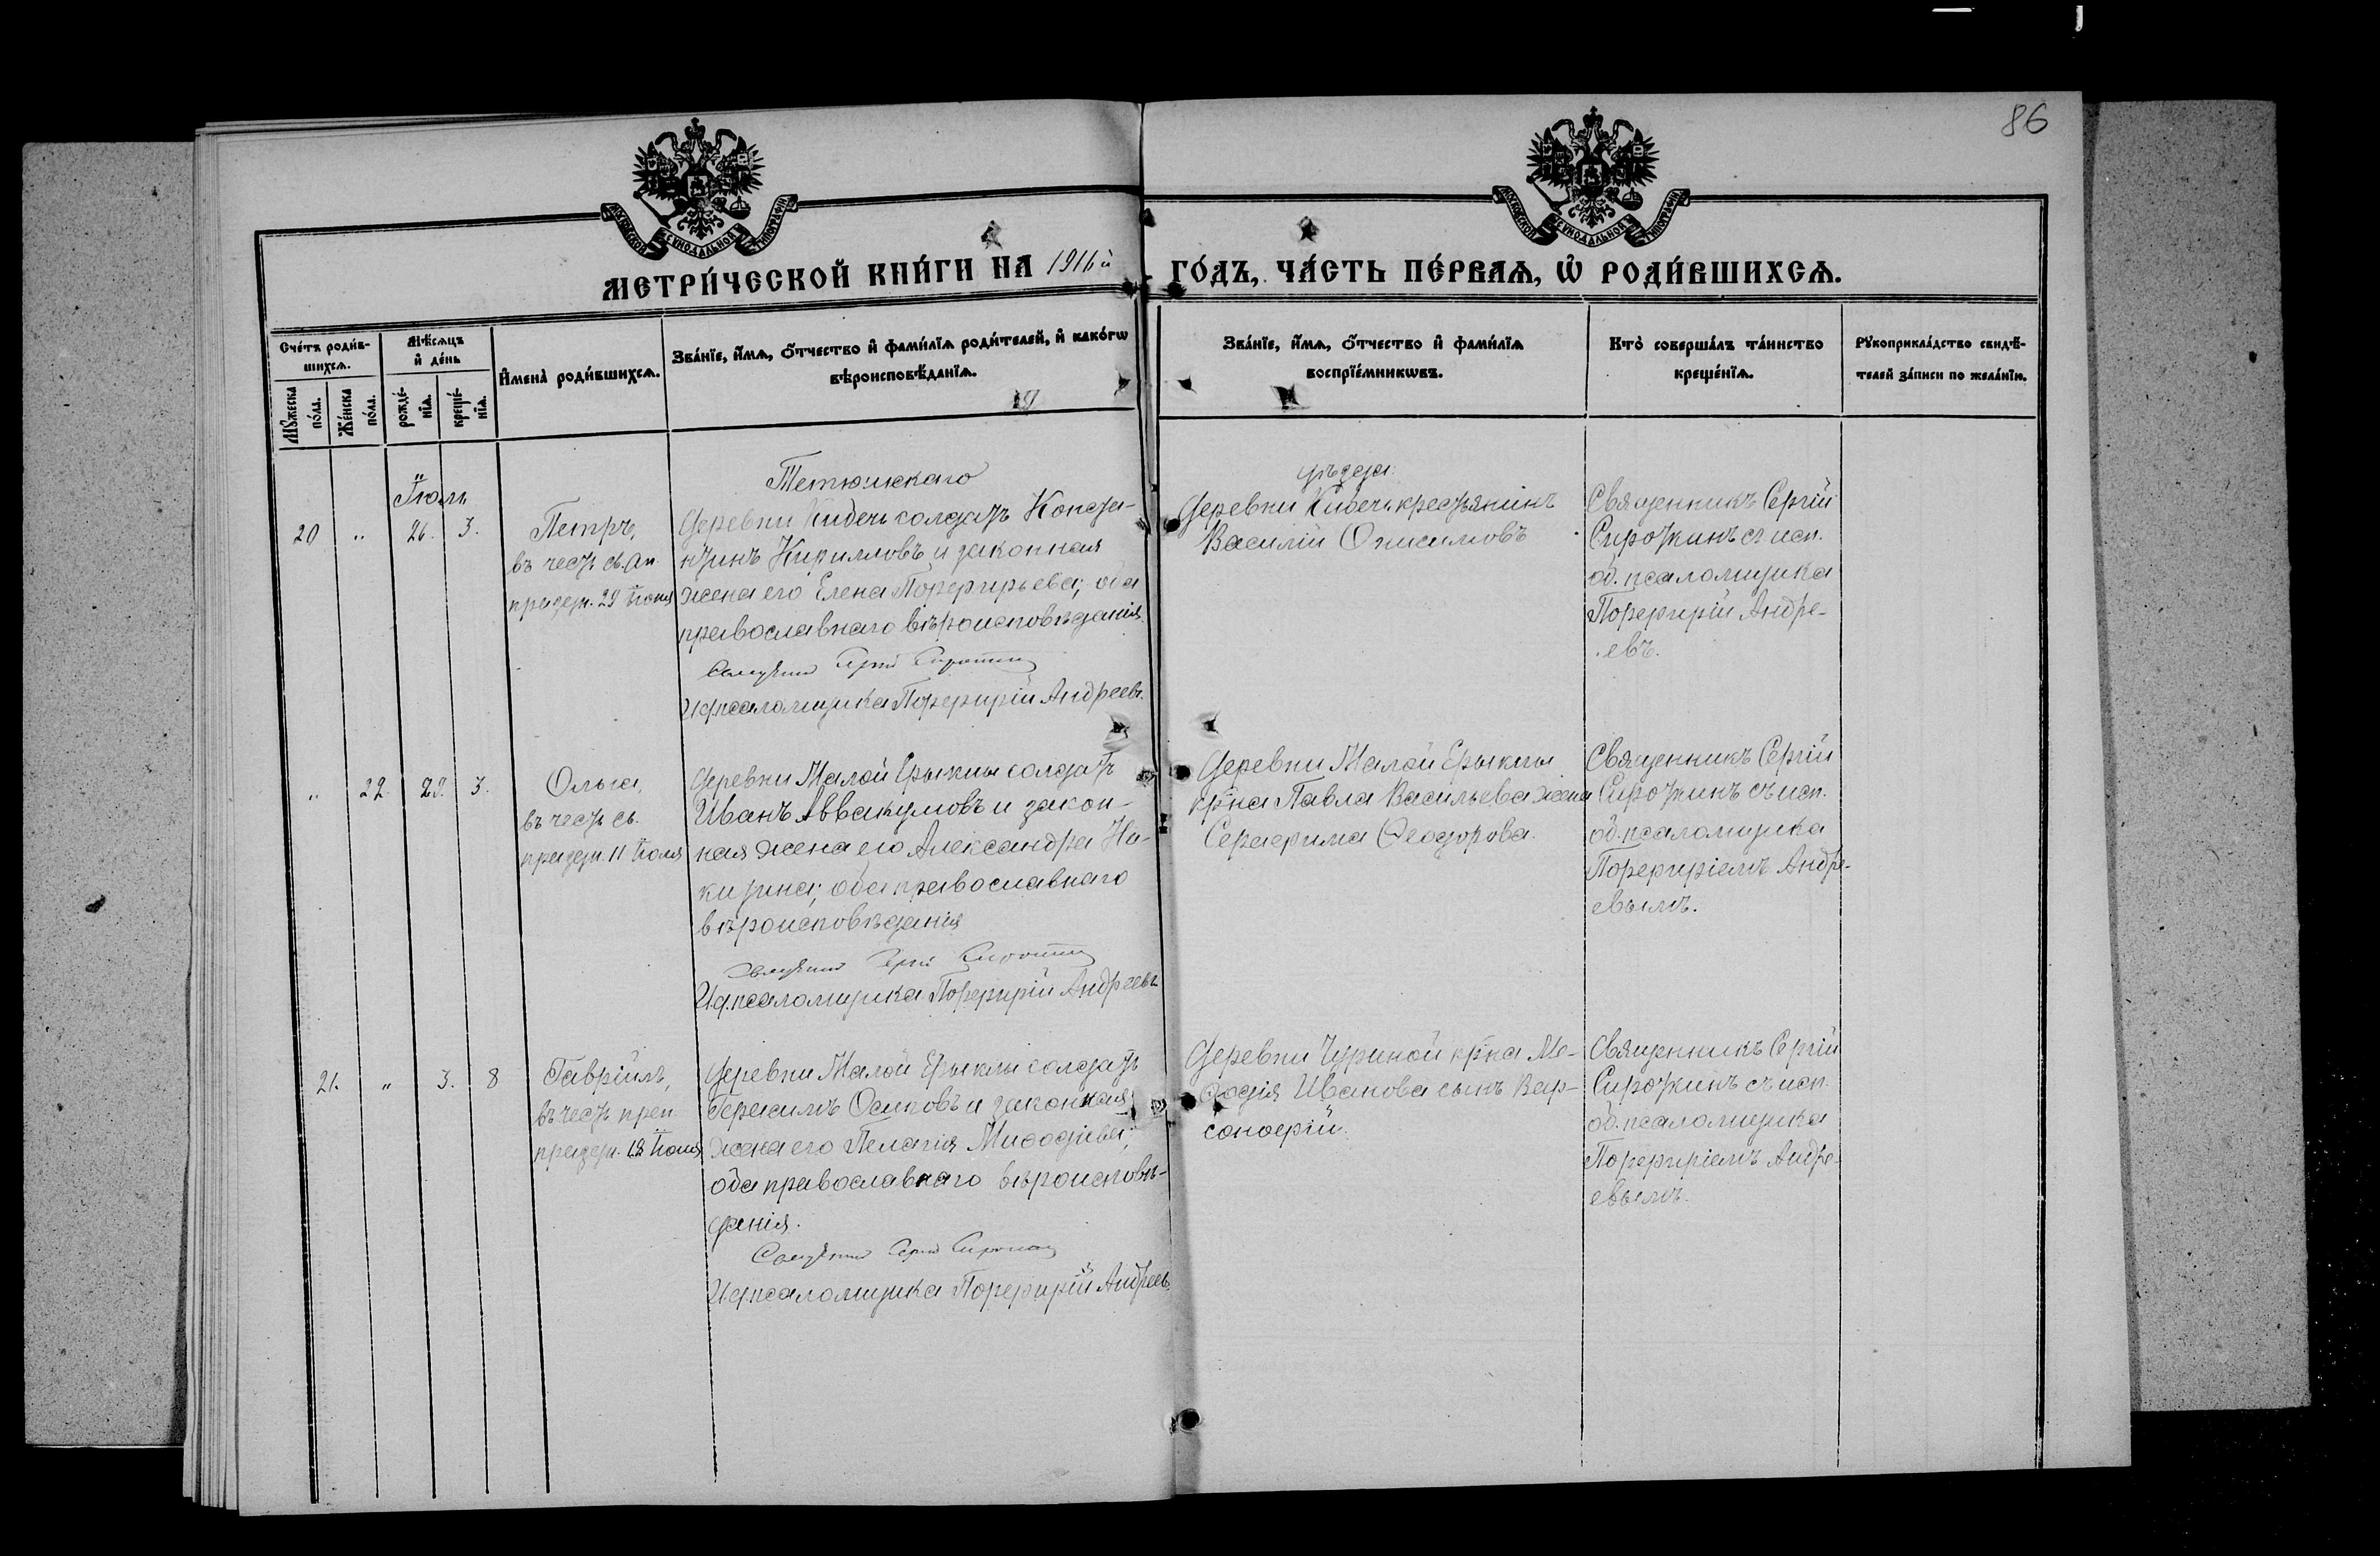 86
МОСКОВСКОЙ СѴНОДАЛЬНОЙ ТИПОГРАФІИ
МОСКОВСКОЙ СѴНОДАЛЬНОЙ ТИПОГРАФІИ
МЕТРИ́ЧЕСКОЙ КНИ́ГИ НА 1916й
ГО́ДЪ, ЧА́СТЬ ПЕ́РВАѦ, Ѡ҆ РОДИ́ВШИХСѦ.
Сче́тъ роди́в-
шихсѧ.
Мꙋ́жеска по́ла.
Же́нска по́ла.
Мѣ́сѧцъ
и҆ де́нь
рожде́-
нїѧ.
креще́-
нїѧ.
И҆мена̀ роди́вшихсѧ.
Зва́нїе, и҆́мѧ, ѻ҆́тчество и҆ фами́лїѧ роди́телей, и҆ како́гѡ
вѣроисповѣ́данїѧ.
Зва́нїе, и҆́мѧ, ѻ҆́тчество и҆ фами́лїѧ
воспрїе́мникѡвъ.
Кто̀ соверша́лъ та́инство
креще́нїѧ.
Рꙋкоприкла́дство свидѣ́-
телей за́писи по жела́нїю.
Іюль
20 " 26. 3.
Петръ,
въ честь св. ап.
праздн. 29 Іюня
Тетюшскаго
деревни Кибечь солдатъ Конста-
нтинъ Кирилловъ и законная
жена его Елена Порфирьева; оба
православнаго вѣроисповѣданія.
Священникъ Сергій Сироткинъ
И.д. псаломщика Порфирій Андреевъ.
уѣзда
деревни Кибечь крестьянинъ
Василій Онисимовъ
Священникъ Сергій
Сироткинъ съ исп.
об. псаломщика
Порфирій Андре-
евъ.
" 22. 29. 3.
Ольга,
въ честь св.
праздн. 11 Іюля
деревни Малой Ерыклы солдатъ
Иванъ Аввакумовъ и закон-
ная жена его Александра Ни-
китина; оба православнаго
вѣроисповѣданія
Священникъ Сергій Сироткинъ
И.д. псаломщика Порфирій Андреевъ
Деревни Малой Ерыклы
кр-на Павла Васильева жена
Серафима Ѳеодорова.
Священникъ Сергій
Сироткинъ съ исп.
об. псаломщика
Порфиріемъ Андре-
евымъ.
21. " 3. 8
Гавріилъ,
въ честь преп.
праздн. 13 Іюля
деревни Малой Ерыклы солдатъ
Герасимъ Осиповъ и законная
жена его Пелагія Миѳодіева;
оба православнаго вѣроисповѣ-
данія.
Священникъ Сергій Сироткинъ
И.д. псаломщика Порфирій Андреевъ.
Деревни Чуриной кр-на Ме-
ѳодія Иванова сынъ Вар-
сонофій.
Священникъ Сергій
Сироткинъ съ исп.
об. псаломщика
Порфиріемъ Андре-
евымъ.